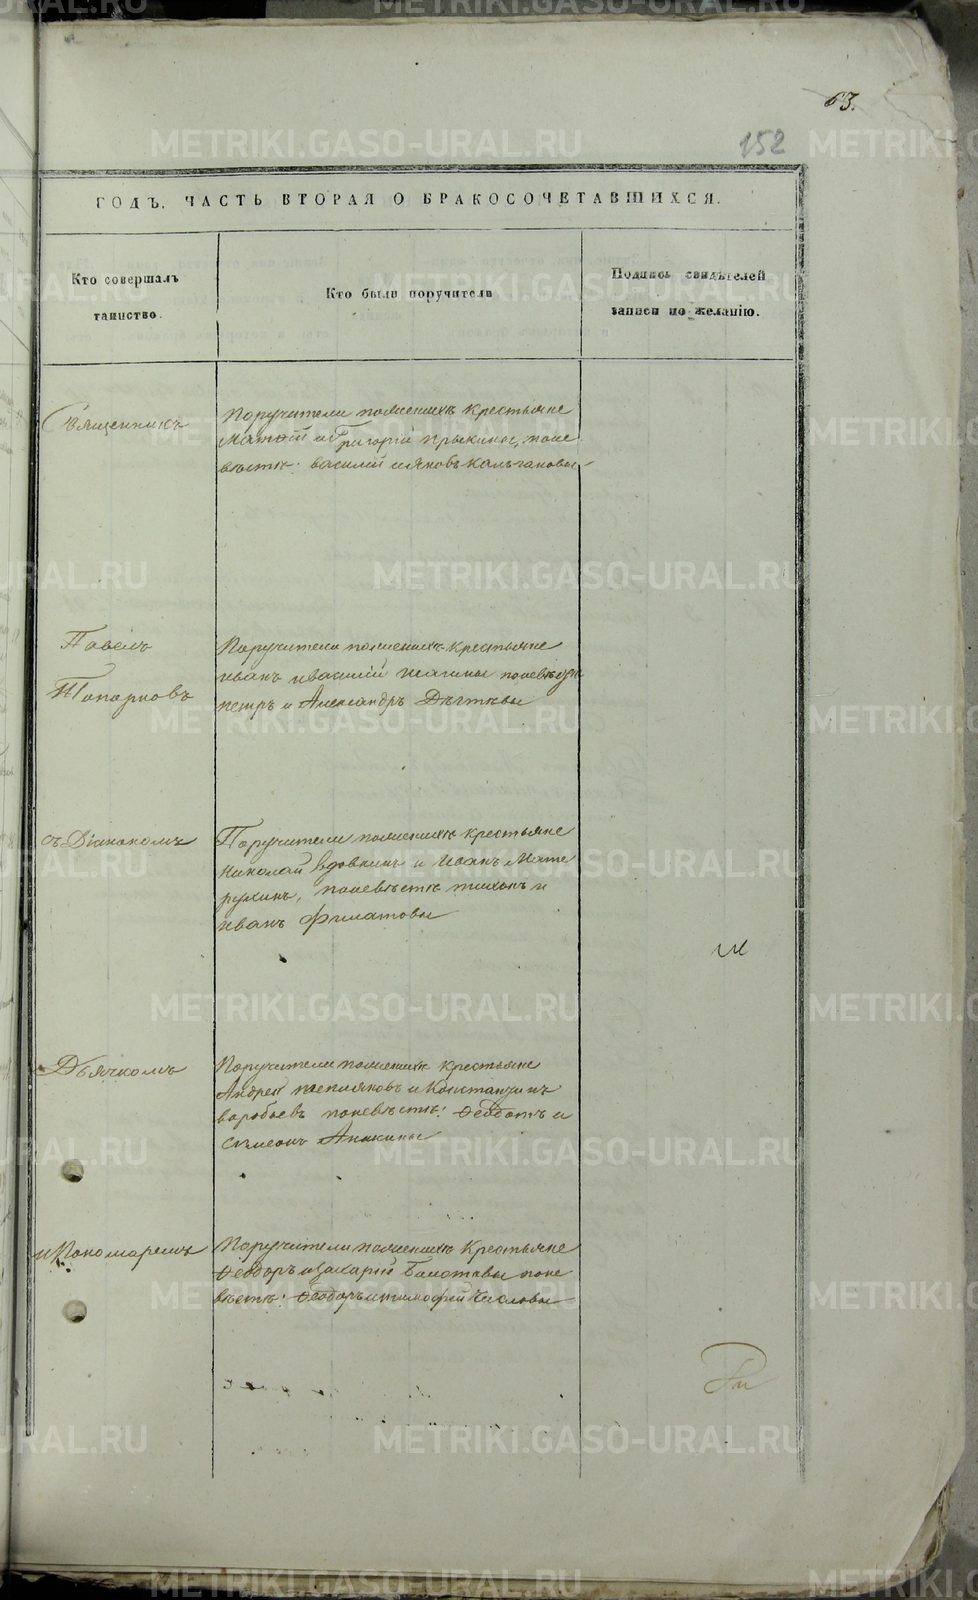 63.
152
ГОДЪ. ЧАСТЬ ВТОРАЯ О БРАКОСОЧЕТАВШИХСЯ.
Кто совершалъ
таинство.
Кто были поручители
Подпись свидѣтелей
записи по желанію.
Священникъ
Поручители по женихѣ крестьяне
Матѳій и Григорій, по не
вѣстѣ: василій и Яковъ Кальгановы
Павелъ
Топорковъ
Поручители по женихѣ крестьяне
иванъ по невѣстѣ
петръ и Александръ
съ Діакономъ
Поручители по женихѣ крестьяне
Николай Вдовкинъ и Иванъ Мате
рухинъ, по невѣстѣ тихонъ и
иванъ Филатовы
Дьячкомъ
Поручители по женихѣ крестьяне
Андрей и Константинъ
воробьевъ по невѣстѣ: Ѳедотъ и
Сѵмеонъ Аникины
и Пономаремъ
Поручители по женихѣ крестьяне
Ѳеодоръ и Захарій по не
вѣстѣ: Ѳеодоръ и тимофей Чусловы
METRIKI.GASO-URAL.RU